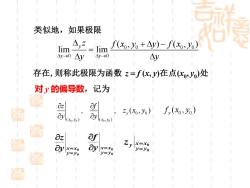 类似地，如果极限
lim_{Δy→0} Δ_y z / Δy = lim_{Δy→0} [f(x₀, y₀ + Δy) − f(x₀, y₀)] / Δy
存在, 则称此极限为函数 z = f (x, y)在点(x₀,y₀)处
对 y 的偏导数，记为
∂z/∂y|_(x₀,y₀) , ∂f/∂y|_(x₀,y₀) , z_y(x₀,y₀) f_y(x₀,y₀)
∂z/∂y|_{x=x₀, y=y₀} ∂f/∂y|_{x=x₀, y=y₀} z_y|_{x=x₀, y=y₀}